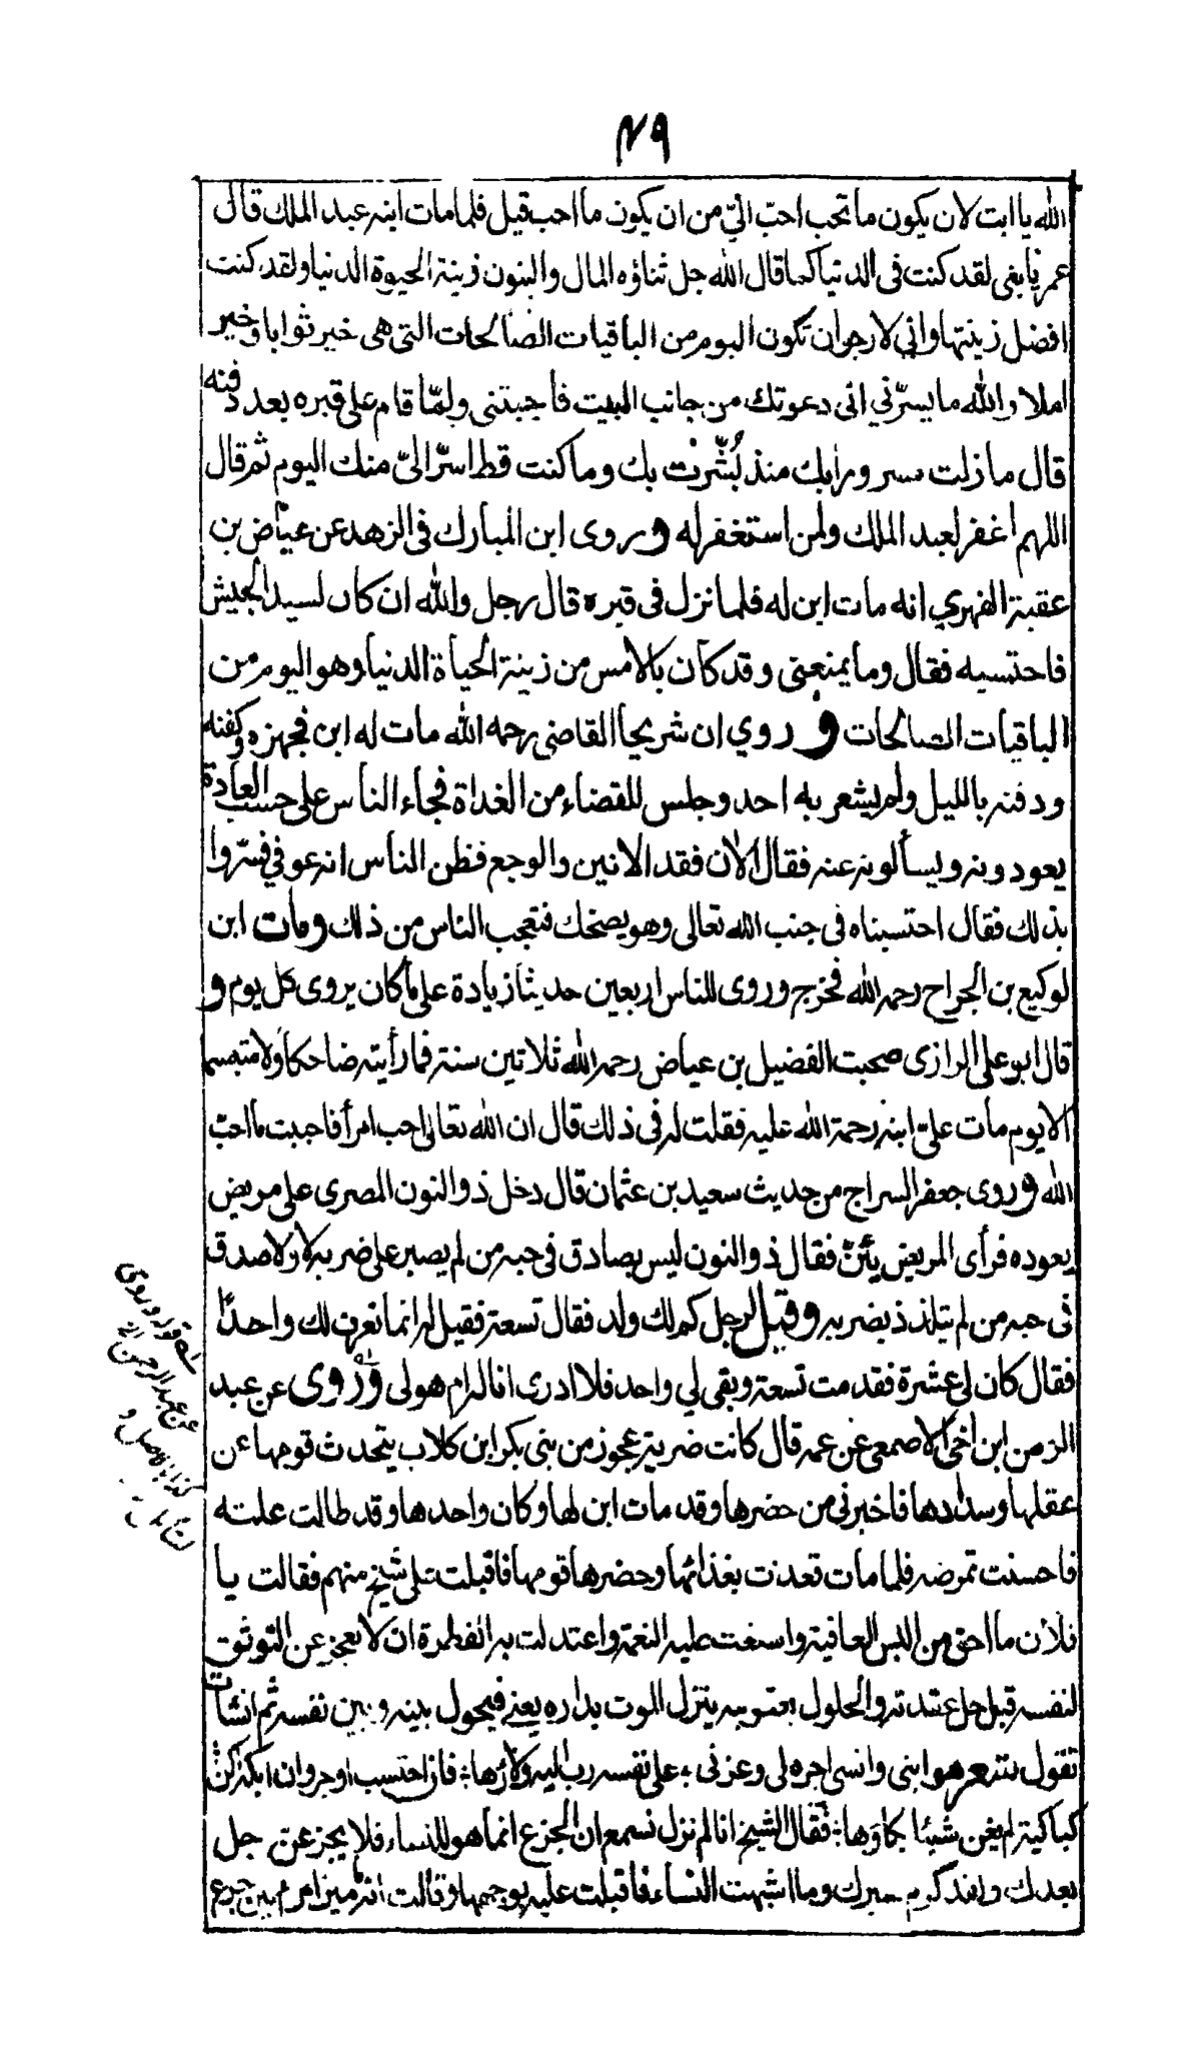 ٤٩
الله يا ابت لان يكون ما تحب احبّ اليّ من ان يكون ما احب قيل فلما مات ابنه عبد الملك قال
عمر يا بنى لقد كنت فى الدنيا كما قال الله جل ثناؤه المال والبنون زينة الحيوة الدنيا ولقد كنت
افضل زينتها واني لارجو ان تكون اليوم من الباقيات الصالحات التى هى خير ثوابا وخير
املا والله ما يسرّني انى دعوتك من جانب البيت فاجبتنى ولمّا قام على قبره بعد دفنه
قال ما زلت مسرورا بك منذ بُشّرتُ بك وما كنت قط اسرّ اليّ منك اليوم ثم قال
اللهم اغفر لعبد الملك ولمن استغفر له وروى ابن المبارك فى الزهد عن عياض بن
عقبة الفهري انه مات ابن له فلما نزل فى قبره قال رجل والله ان كان لسيد الجيش
فاحتسبه فقال وما يمنعنى وقد كان بالامس من زينة الحياة الدنيا وهو اليوم من
الباقيات الصالحات وروي ان شريحا القاضى رحمه الله مات له ابن فجهزه وكفنه
ودفنه بالليل ولم يشعر به احد وجلس للقضاء من الغداة فجاء الناس على حسب العادة
يعودونه ويسألونه عنه فقال الآن فقد الانين والوجع فظن الناس انه عوفي فسّروا
بذلك فقال احتسبناه فى جنب الله تعالى وهو يضحك فتعجب الناس من ذلك ومات ابن
لوكيع بن الجراح رحمه الله فخرج وروى للناس اربعين حديثا زيادة على ما كان يروى كل يوم و
قال ابو على الرازى صحبت الفضيل بن عياض رحمه الله ثلاثين سنة فما رأيته ضاحكا ولا متبسما
الا يوم مات علىّ ابنه رحمة الله عليه فقلت له فى ذلك قال ان الله تعالى احب امرا فاحببت ما احبّ
الله وروى جعفر السراج من حديث سعيد بن عثمان قال دخل ذو النون المصرى على مريض
يعوده فرأى المريض يئنّ فقال ذو النون ليس بصادق فى حبه من لم يصبر على ضربه لا ولا صدق
فى حبه من لم يتلذذ بضربه وقيل لرجل كم لك ولد فقال تسعة فقيل له انما نعرف لك واحدًا
فقال كان لى عشرة فقدمت تسعة وبقى لي واحد فلا ادرى انا له ام هو لى وروى عن عبد
الرحمن ابن اخى الاصمعى عن عمه قال كانت ضريبة عجوز من بنى بكر ابن كلاب يتحدث قومها عن
عقلها وسدادها فاخبرنى من حضرها وقد مات ابن لها وكان واحدها وقد طالت علته
فاحسنت تمرضه فلما مات قعدت بفنائها وحضرها قومها فاقبلت على شيخ منهم فقالت يا
فلان ما احق من البس العافية واسبغت عليه النعمة واعتدلت به الفطرة ان لا يعجز عن التوثق
لنفسه قبل حل عقدته والحلول بعقوبته ينزل الموت بداره يعنى فيحول بينه وبين نفسه ثم انشأت
تقول شعر هو ابنى وانسى اجره لى وعزنى ؛ على نفسه رب اليه ولاؤها ؛ فان احتسب اوجر وان ابكه اكن
كباكية لم يغن شيئا بكاؤها ؛ فقال الشيخ انا لم نزل نسمع ان الجزع انما هو للنساء فلا يجزعن رجل
بعدك ولقد كرم صبرك وما اشبهت النساء فاقبلت عليه بوجهها وقالت انه ما ميز امرء بين جزع